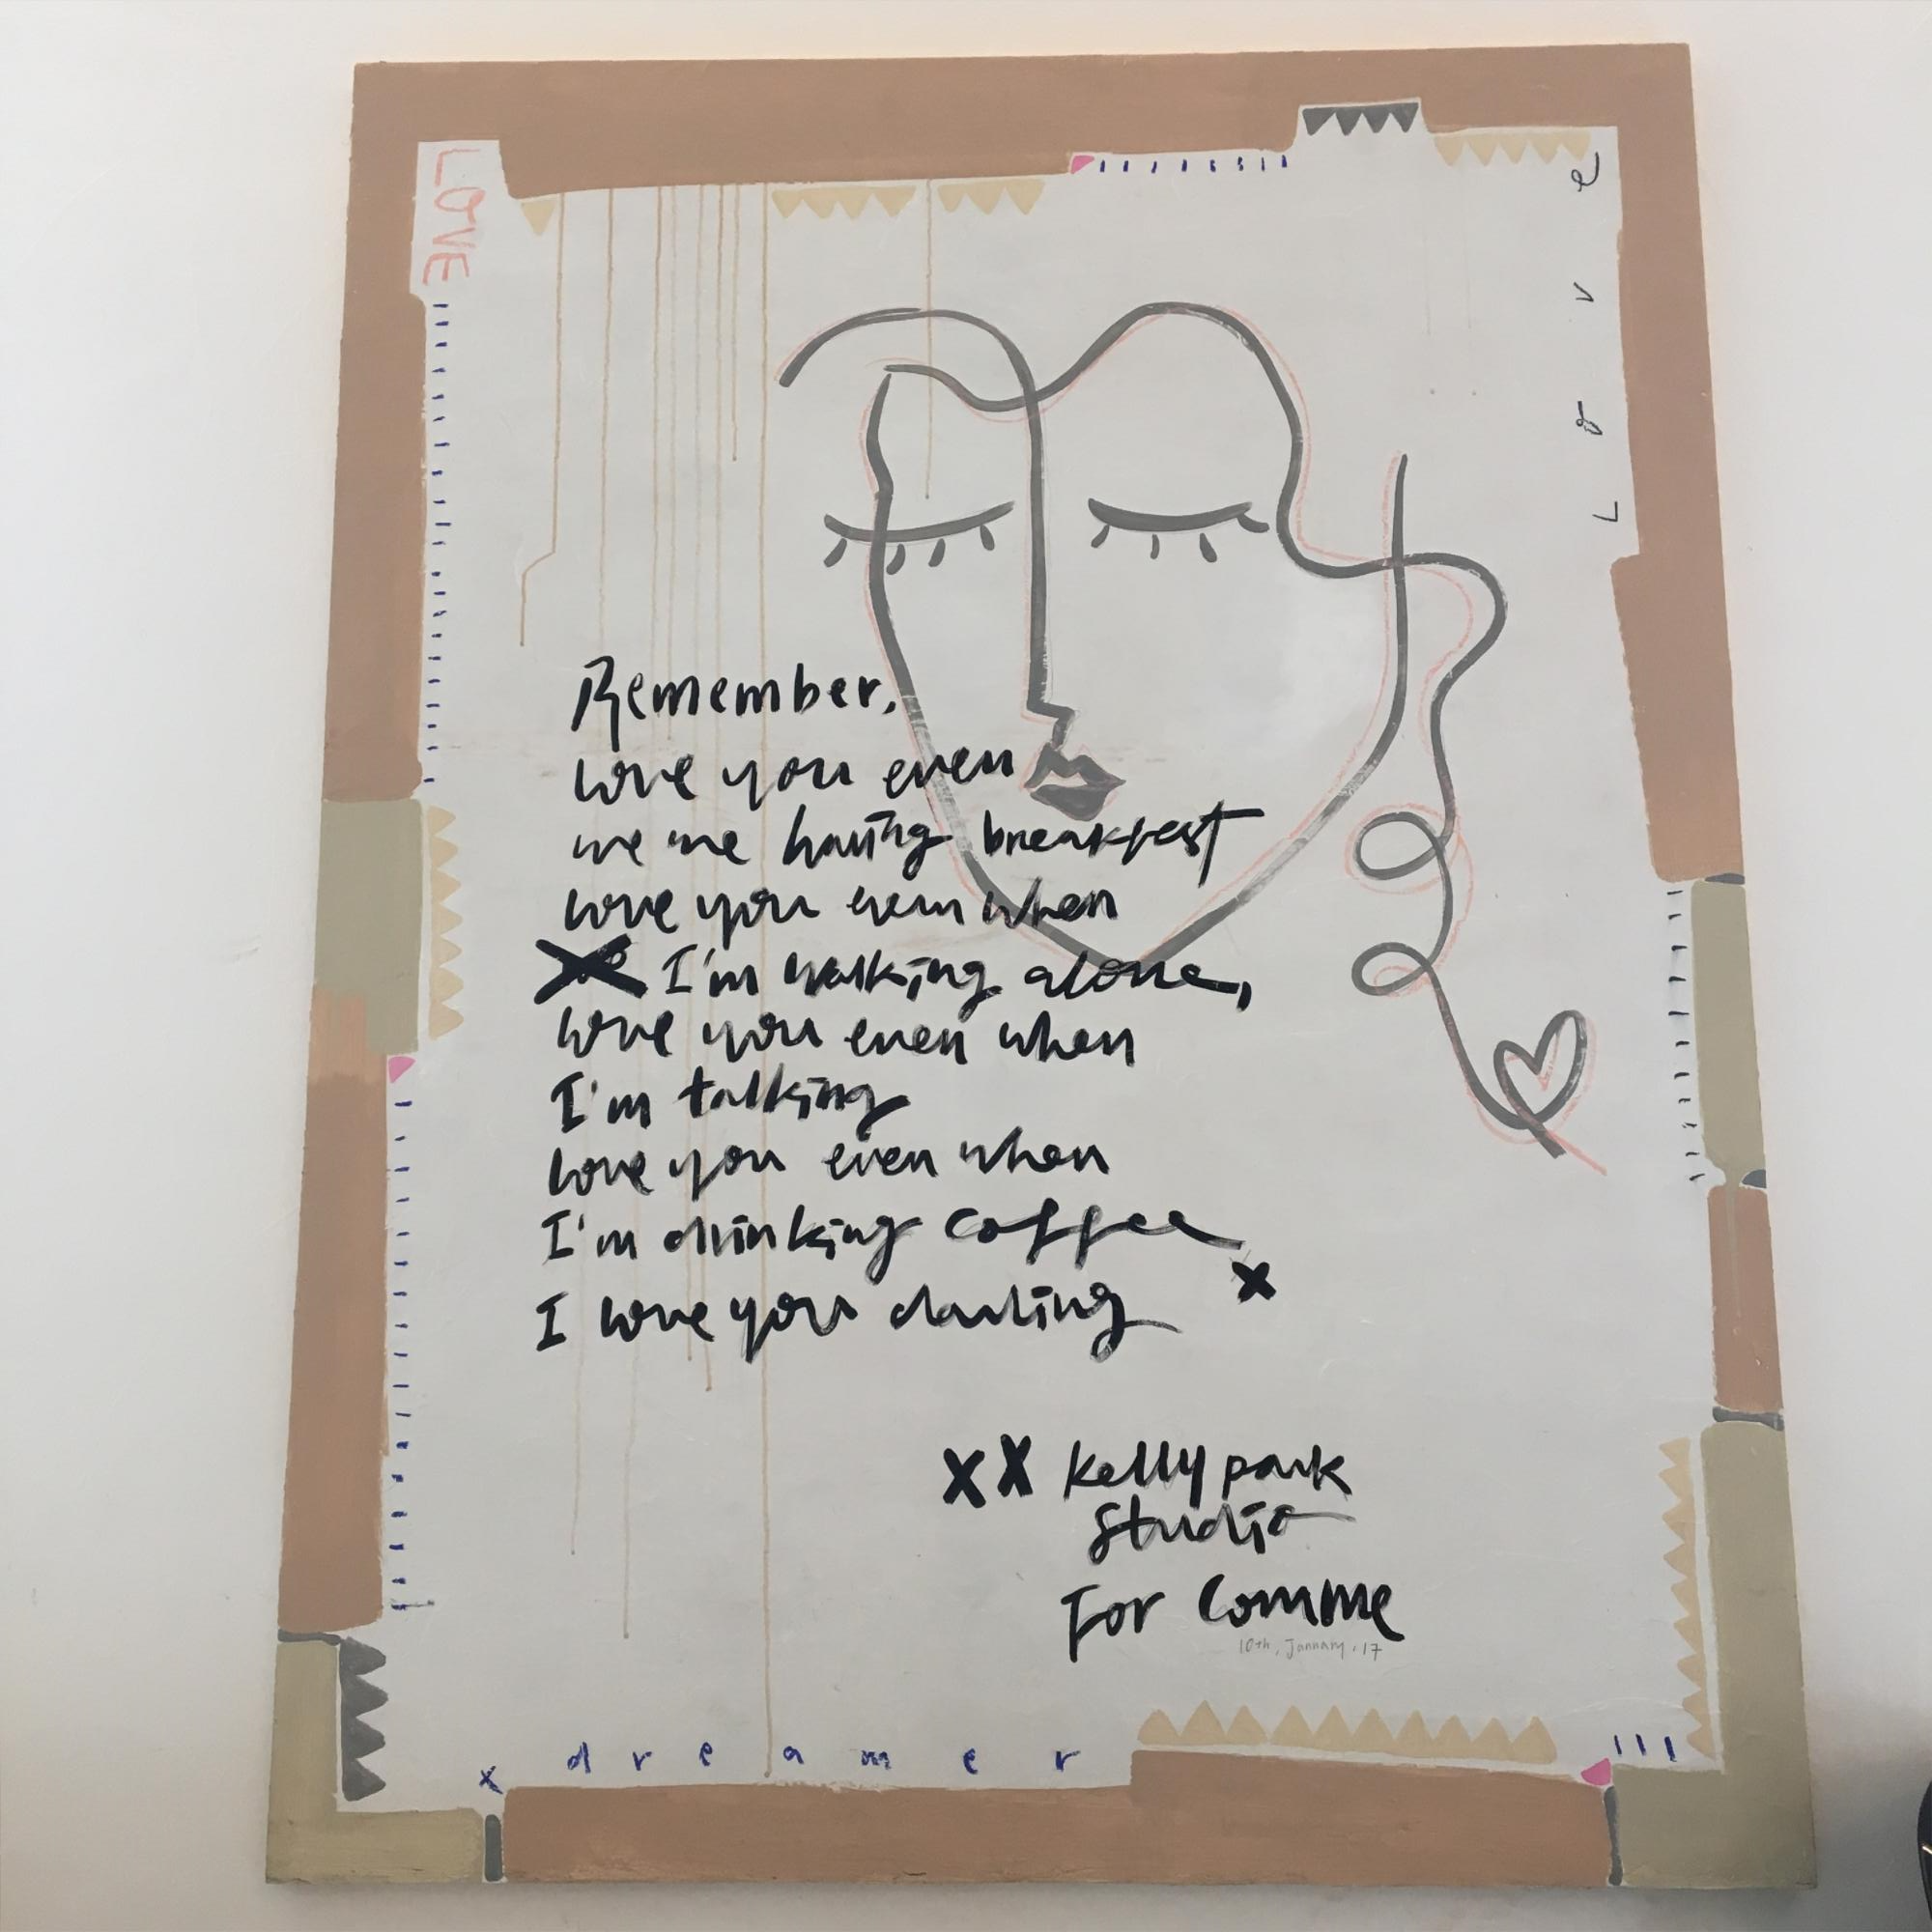 LOVE
Love
Remember,
love you even
we are having breakfest
love you even when
I'm walking alone,
love you even when
I'm talking
love you even when
I'm drinking coffee
x
I love you darling
xx kelly park
studio
For Comme
10th, January. 17
x dreamer